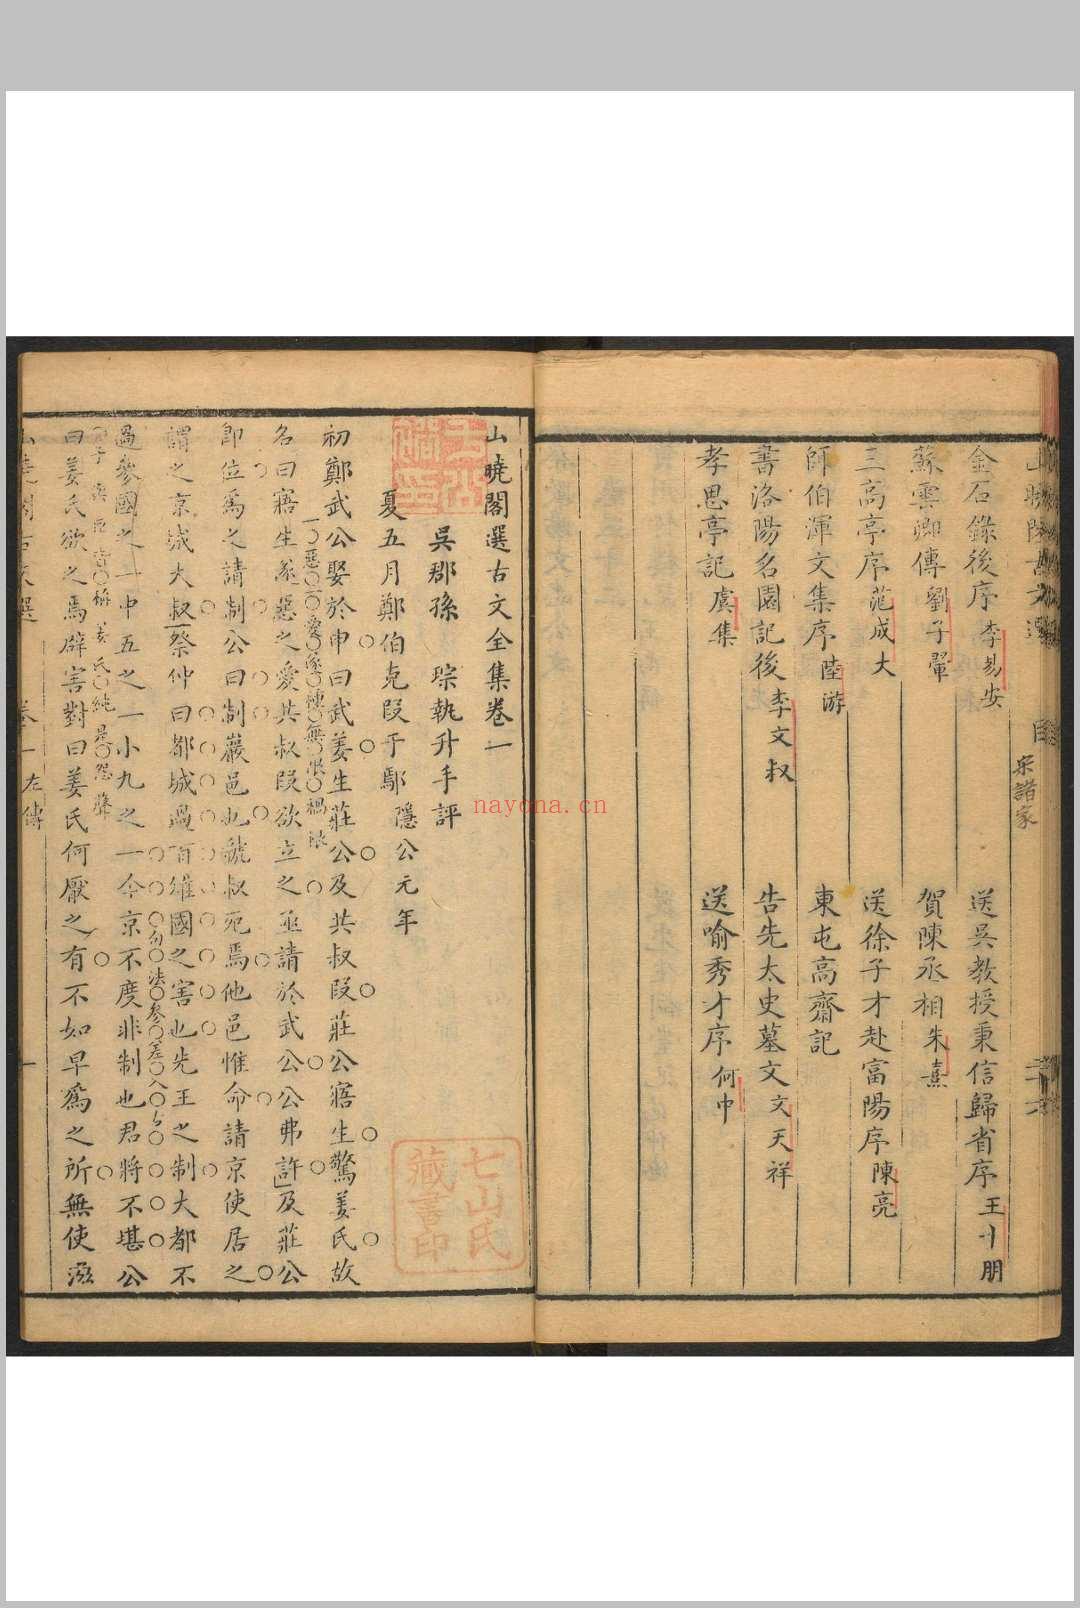 金石錄後序 李易安
送吳教授秉信歸省序 王十朋
蘇雲卿傳 劉子翬
賀陳丞相 朱熹
三高亭序 范成大
送徐子才赴富陽序 陳亮
師伯渾文集序 陸游
東屯高齋記
書洛陽名園記後 李文叔
告先太史墓文 文天祥
孝思亭記 虞集
送喻秀才序 何中
目
宋諸家
山曉閣選古文全集卷一
吳郡孫琮執升手評
夏五月鄭伯克段于鄢 隱公元年
初鄭武公娶於申曰武姜生莊公及共叔段莊公寤生驚姜氏故
名曰寤生遂惡之愛共叔段欲立之亟請於武公公弗許及莊公
即位爲之請制公曰制巖邑也虢叔死焉他邑惟命請京使居之
謂之京城大叔祭仲曰都城過百雉國之害也先王之制大都不
過參國之一中五之一小九之一今京不度非制也君將不堪公
曰姜氏欲之焉辟害對曰姜氏何厭之有不如早爲之所無使滋
卷一 左傳 一
七山氏
藏書印
nayona.cn